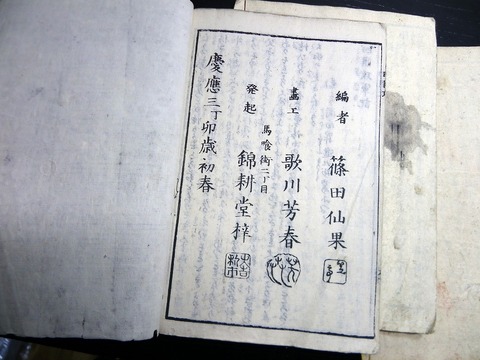 編者 篠田仙果
畫工 歌川芳春
馬喰街二丁目
発起 錦耕堂梓
慶應三丁卯歳初春